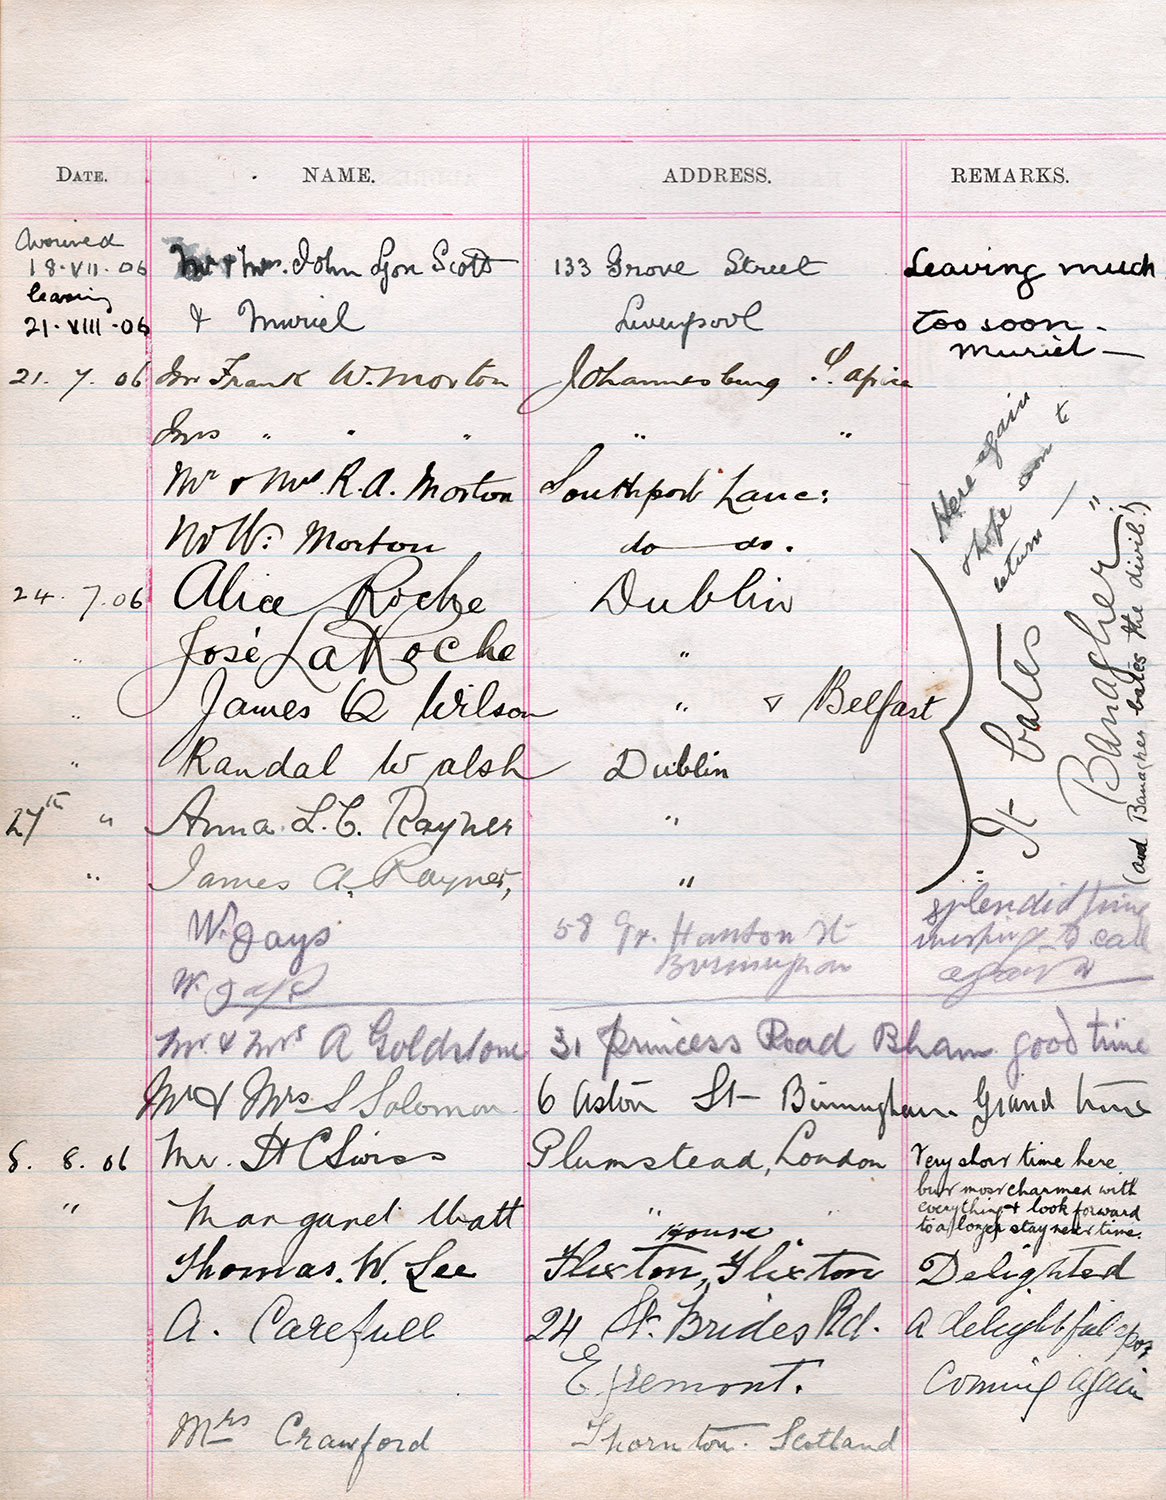 DATE. NAME. ADDRESS. REMARKS.
Arrived
18·VII·06 Mr & Mrs. John Lyon Scott 133 Grove Street Leaving much
leaving
21·VIII·06 & Muriel Liverpool too soon -
Muriel —
21. 7. 06 Mr Frank W. Morton Johannesburg S. Africa
Mrs " " " " "
Mr & Mrs. R. A. Morton Southport Lanc:
W. Morton do do.
Here again
& hope soon to
return —
24. 7. 06 Alice Roche Dublin
" José LaRoche "
" James Q Wilson " & Belfast
" Randal Walsh Dublin
27th " Anna. L. C. Rayner "
" James A. Rayner, "
It bates
Banagher "
(and Banagher bates the divil!)
W. Jays 58 Gr. Hampton St splendid time
Birmingham wishing to call
W. Jays again
Mr. & Mrs A Goldstone 31 Princess Road Bham good time
Mr & Mrs S Solomon 6 Aston St Birmingham Grand time
8. 8. 06 Mr. Swiss Plumstead, London Very short time here
" Margaret Watt " " but most charmed with
everything & look forward
to a longer stay next time.
House
Thomas. W. Lee Flixton, Flixton Delighted
A. Carefull 24 St. Brides Rd. A delightful spot
Egremont. Coming again
Mrs Crawford Thornton. Scotland